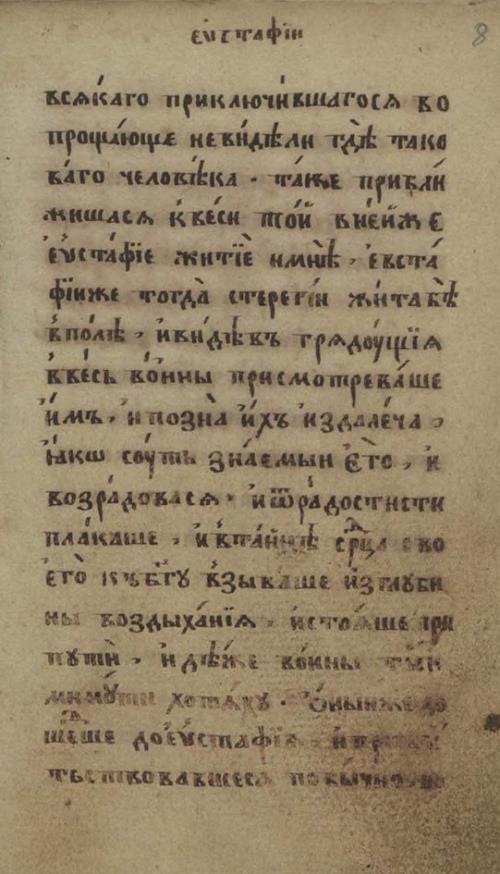 еѵстафїи 8
всѧ́каго приключи́вшагосѧ во
прошаю́ще неви́дѣли гдѣ̀ тако
ва́го человѣ́ка · та́же прибли́
жишасѧ к ве́си то́й в не́йже
еѵста́фїе житїѐ имѣ̀ѧ̀, евста́
фїиже тогда̀ стерегі́и жита бѣ̀
в по́лѣ, и ви́дѣвъ грѧдꙋ́щїѧ
в ве́сь во́ины присмотрева́ше
и́мъ, и позна̀ и́хъ издале́ча,
ꙗ́кѡ сꙋ́ть зна́емыи є҆го̀, и
возра́довасѧ · и ѿ ра́дости
пла́каше, и в та́йнѣ ср҃ца сво
его̀ къ бг҃ꙋ взыва́ше из глуби
ны воздыха́нїѧ, и стоѧ́ше при
путѝ, идѣ́же во́ины ті́и
мимои́ти хотѧ́хꙋ · ѻ́ныиже до
ше́дше до еѵста́фїѧ